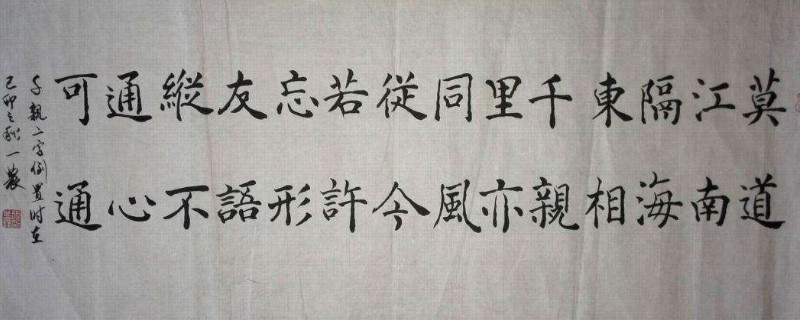 莫道
江南
隔海
東相
千親
里亦
同風
從今
若許
忘形
友語
縱不
通心
可通
千親二字倒置时在
己卯之秋一農